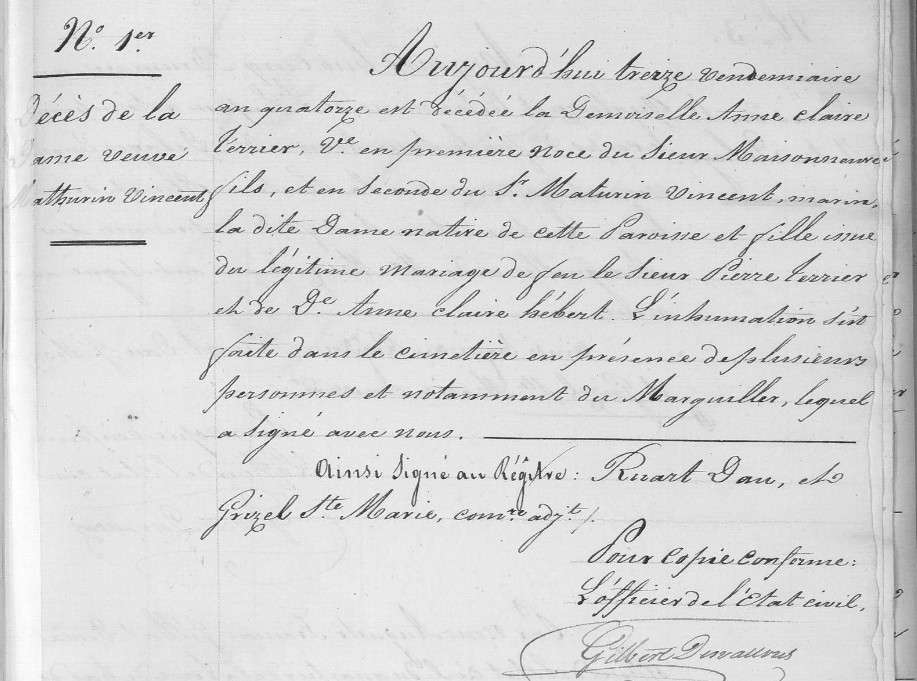 N.º 1.er
Décès de la
Dame veuve
Mathurin Vincent
Aujourd'hui treize vendemiaire
an quatorze est décédée la Demoiselle Anne claire
Terrier, V.e en première noce du Sieur Maisonneuve
fils, et en seconde du S.r Maturin Vincent, marin,
la dite Dame native de cette Paroisse et fille issue
du légitime mariage de feu le Sieur Pierre Terrier
et de D.e Anne claire hébert. L'inhumation s'est
faite dans le cimetière en présence de plusieurs
personnes et notamment du Marguiller, lequel
a signé avec nous.
Ainsi Signé au Régistre: Ruart Dau, et
Grizel S.te Marie, com.re adj.t /.
Pour copie conforme:
L'officier de l'Etat civil,
Gilbert